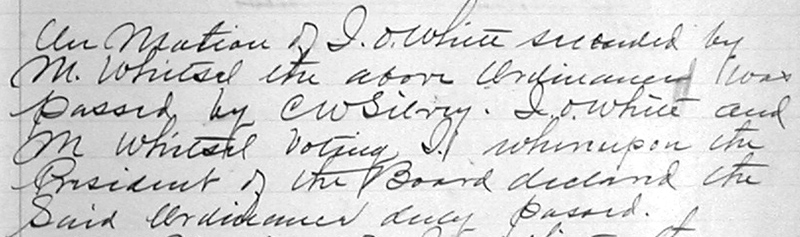 On Motion of I. O. White seconded by
M. Whitsel the above Ordinance was
passed by C W Gilvry. I. O. White and
M Whitsel Voting I. whereupon the
President of the Board declared the
Said Ordinance duly passed.